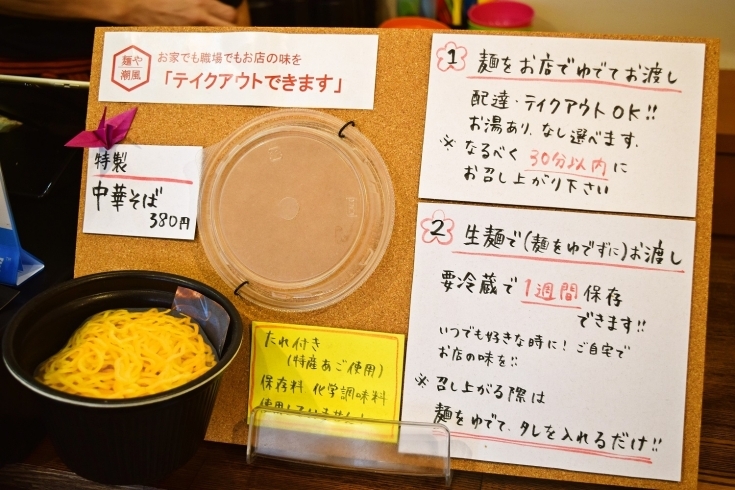 麺や
潮風
お家でも職場でもお店の味を
「テイクアウトできます」
特製
中華そば
380円
たれ付き
(特産あご使用)
保存料 化学調味料
使用していません!
1 麺をお店でゆでてお渡し
配達・テイクアウトOK!!
お湯あり、なし選べます.
※ なるべく 30分以内に
お召し上がり下さい
2 生麺で(麺をゆでずに)お渡し
要冷蔵で 1週間保存
できます!!
いつでも好きな時に! ご自宅で
お店の味を!!
※ 召し上がる際は
麺をゆでて、タレを入れるだけ!!